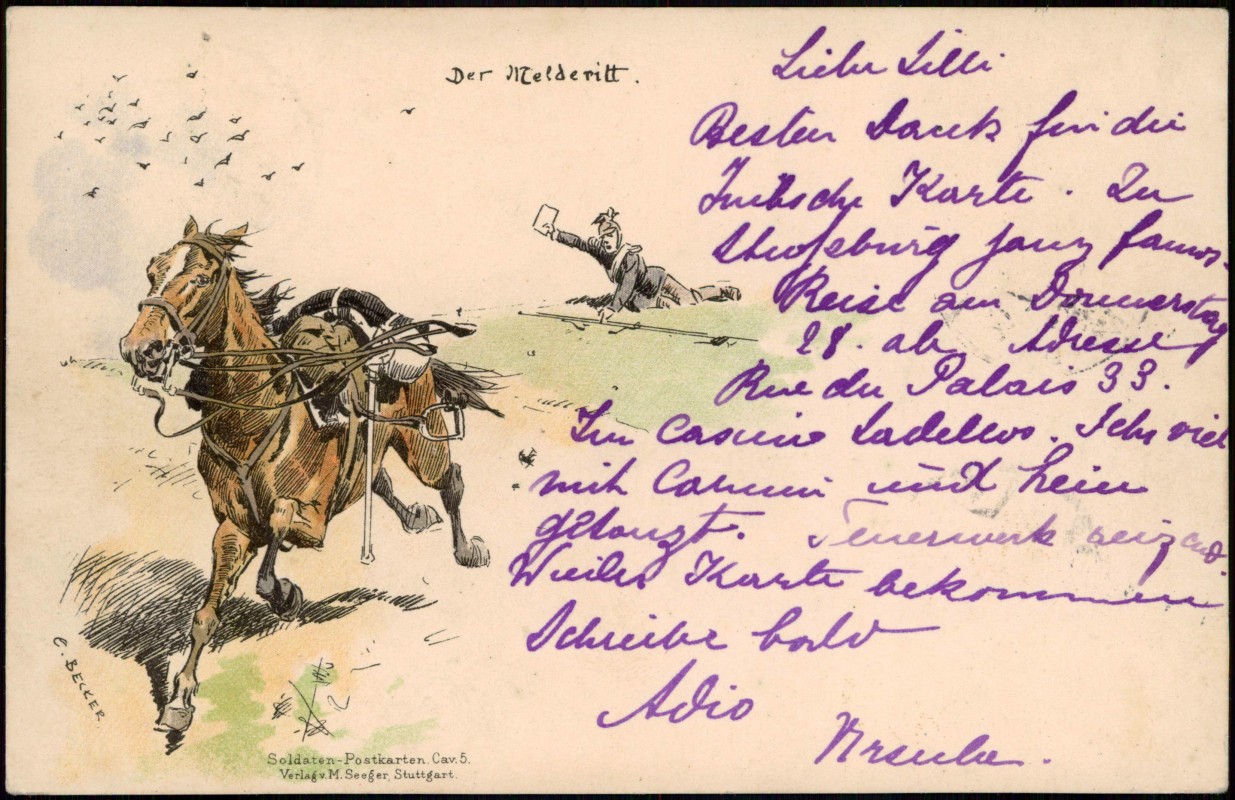 Der Melderitt.
Liebe Lilli
Besten Dank für die
hübsche Karte. In
Straßburg ganz famos.
Reise am Donnerstag
28. ab Adresse
Rue du Palais 33.
Im Casino tadellos. Sehr viel
mit und
getanzt. Feuerwerk reizend.
Karte bekommen
Schreibe bald
Adio
Ursula.
C. BECKER.
Soldaten-Postkarten. Cav. 5.
Verlag v. M. Seeger, Stuttgart.